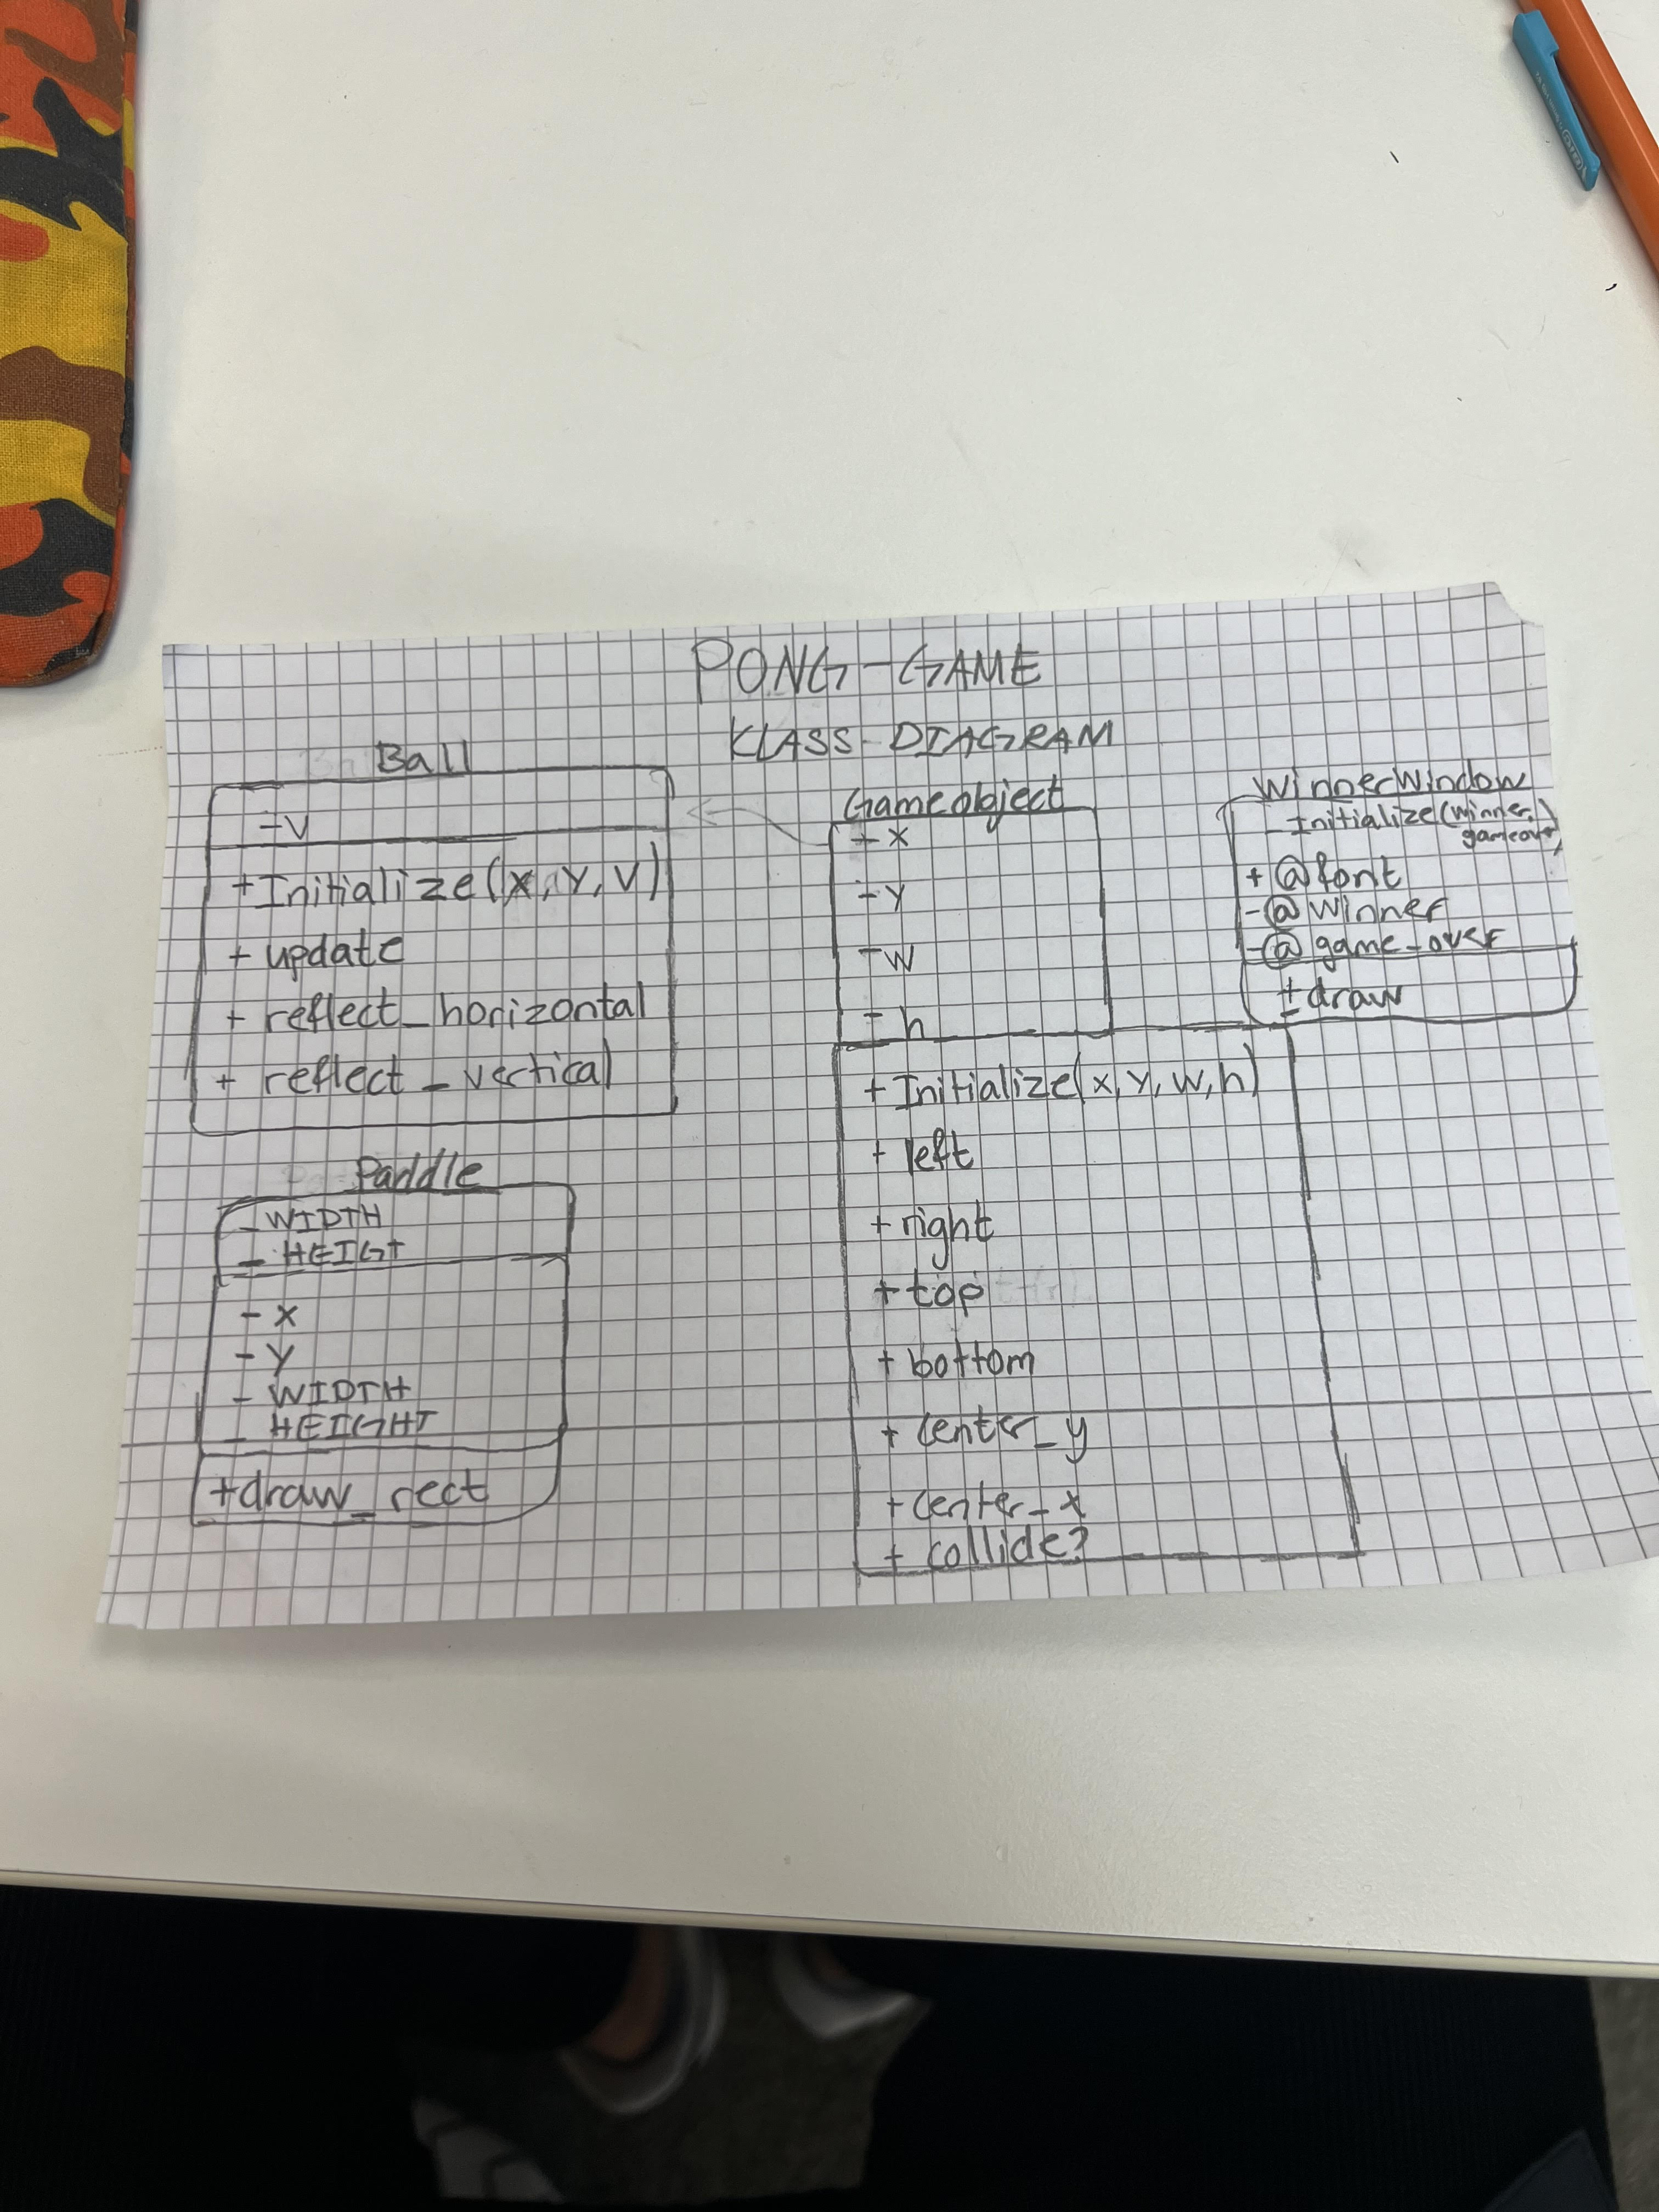 PONG-GAME
KLASS-DIAGRAM
Ball
-v
+Initialize(x, y, v)
+ update
+ reflect_horizontal
+ reflect_vertical
Paddle
- WIDTH
- HEIGT
- x
- y
- WIDTH
- HEIGHT
+draw_rect
Gameobject
- x
- y
- w
- h
+ Initialize(x, y, w, h)
+ left
+ right
+ top
+ bottom
+ center_y
+ center_x
+ collide?
WinnerWindow
- Initialize(winner,
gameover)
+ @font
-@winner
-@game_over
+draw